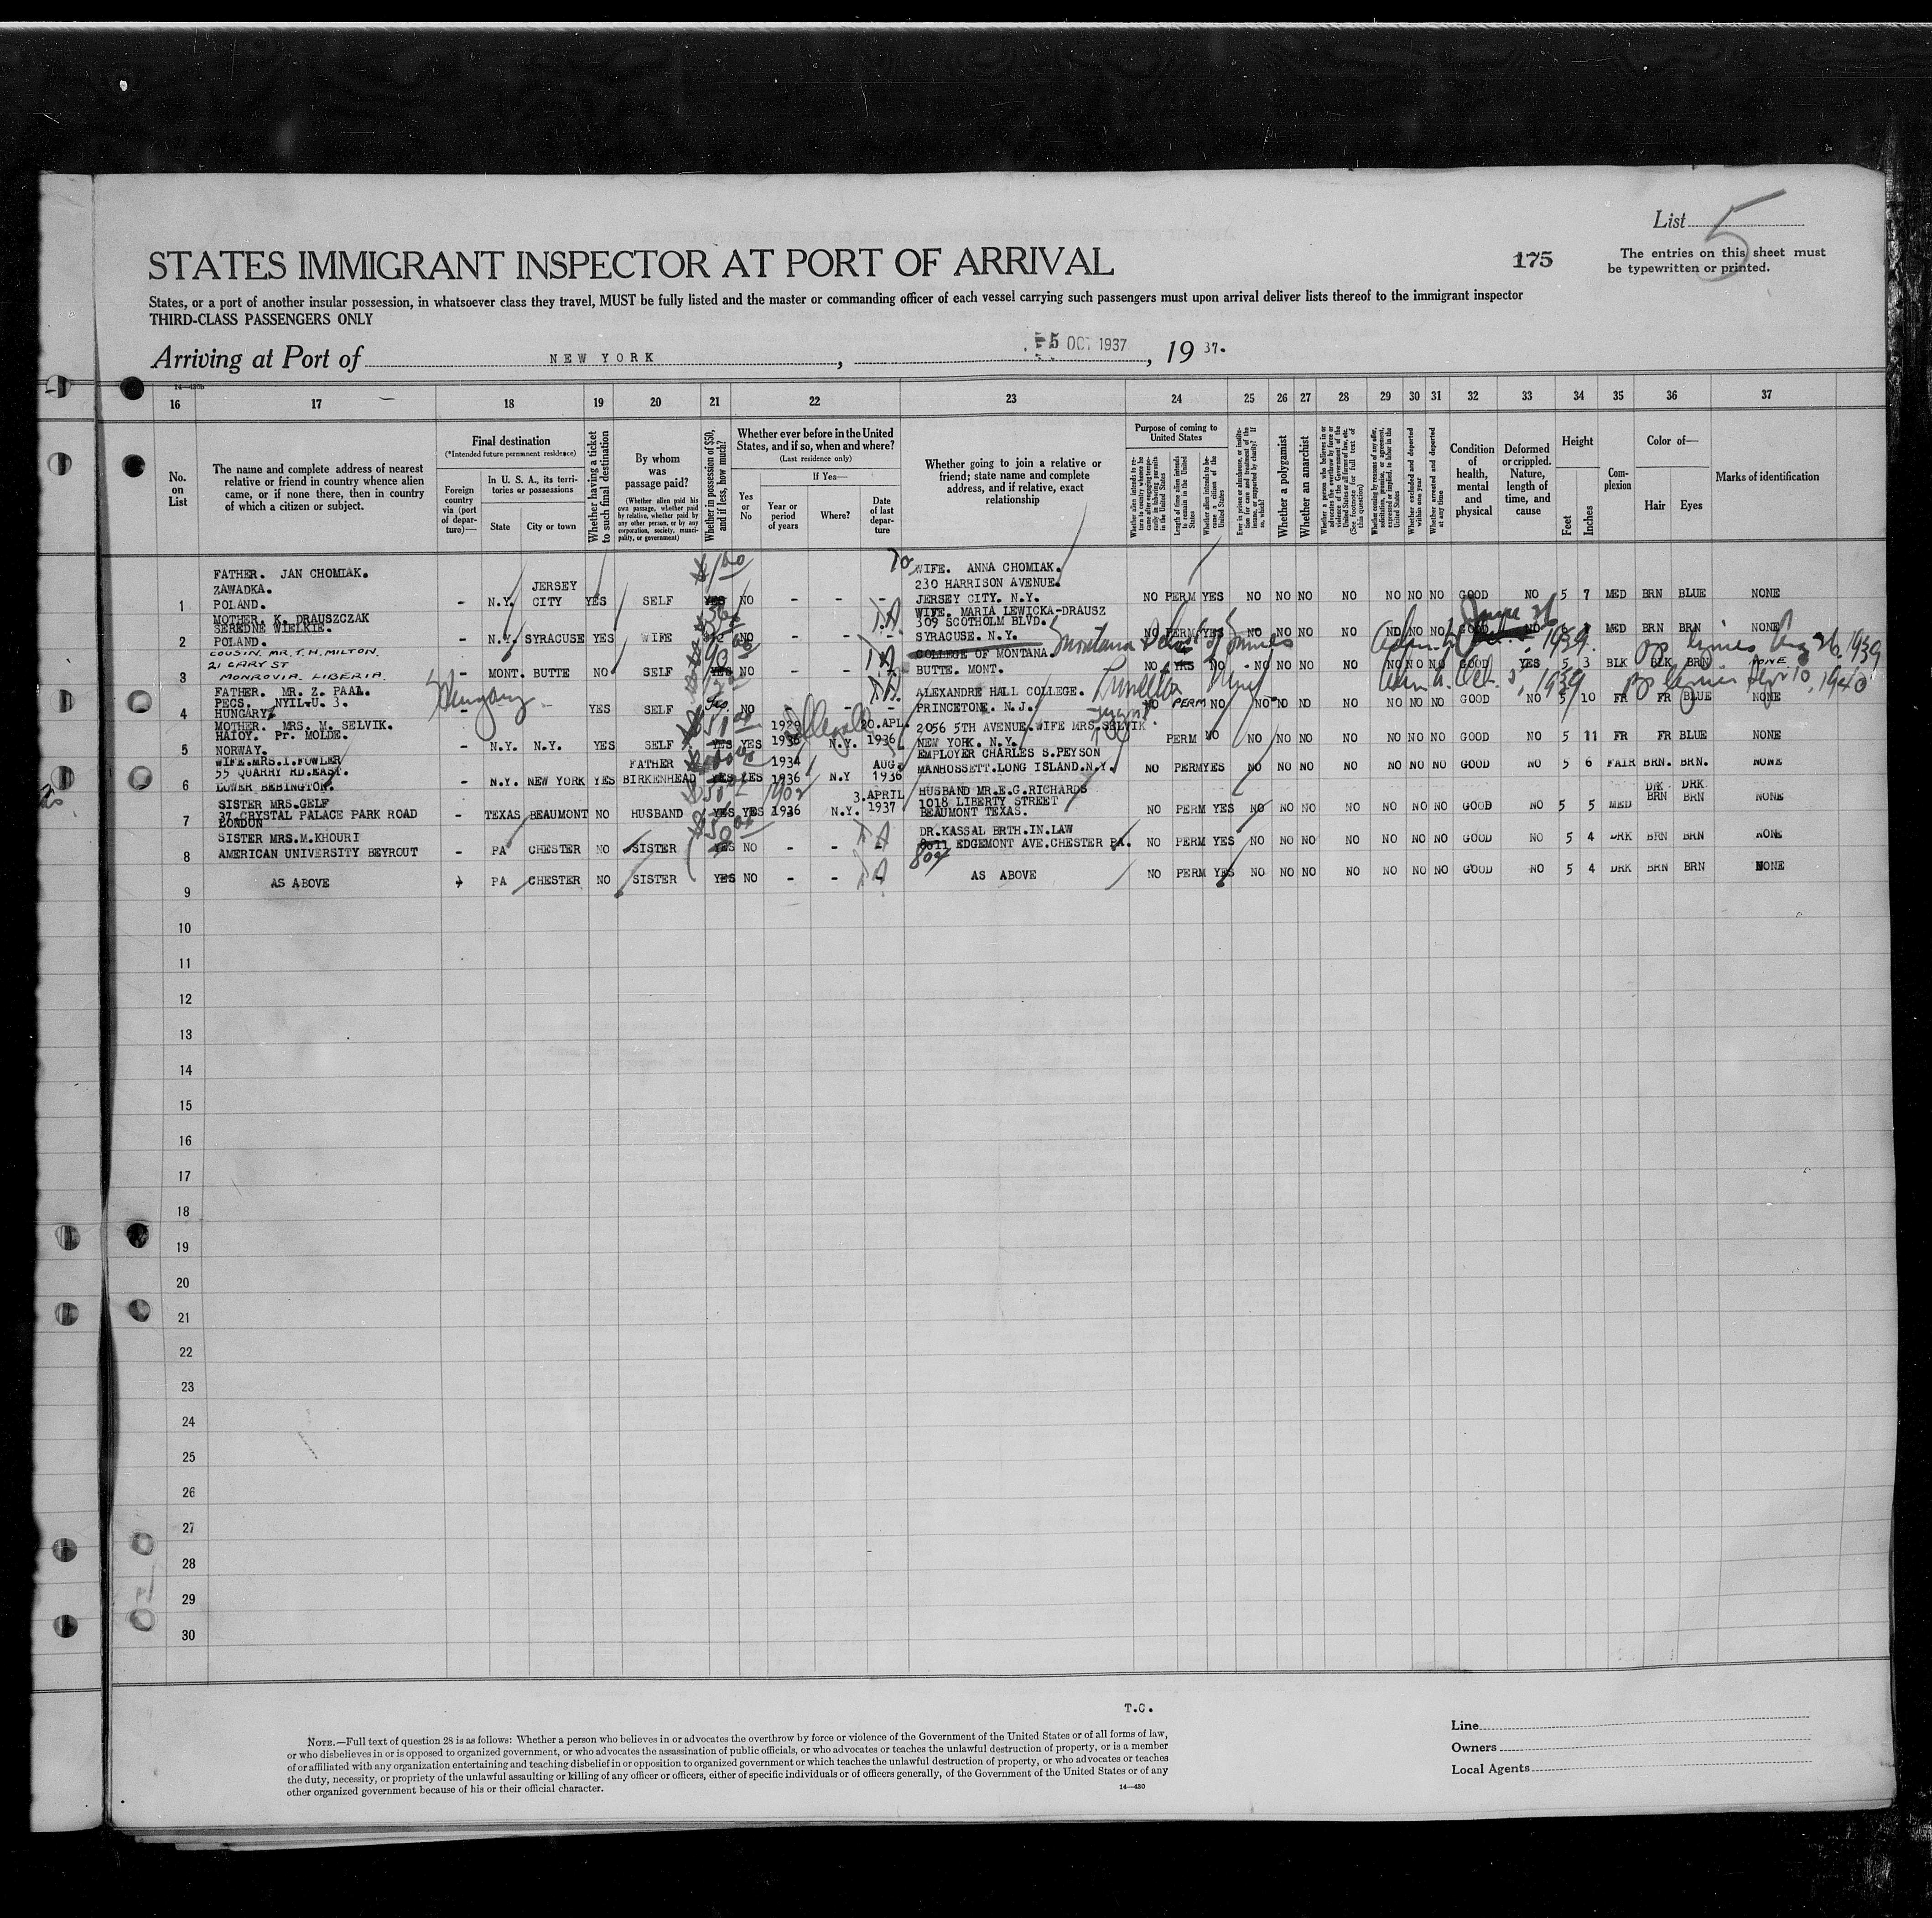 List 5
STATES IMMIGRANT INSPECTOR AT PORT OF ARRIVAL
175
The entries on this sheet must
be typewritten or printed.
States, or a port of another insular possession, in whatsoever class they travel, MUST be fully listed and the master or commanding officer of each vessel carrying such passengers must upon arrival deliver lists thereof to the immigrant inspector
THIRD-CLASS PASSENGERS ONLY
Arriving at Port of NEW YORK, 5 OCT 1937, 19 37.
16 17 18 19 20 21 22 23 24 25 26 27 28 29 30 31 32 33 34 35 36 37
No. on List
The name and complete address of nearest relative or friend in country whence alien came, or if none there, then in country of which a citizen or subject.
Final destination
(*Intended future permanent residence)
Foreign country via (port of departure)—
In U. S. A., its territories or possessions
State
City or town
Whether having a ticket to such final destination
By whom was passage paid?
(Whether alien paid his own passage, whether paid by relative, whether paid by any other person, or by any corporation, society, municipality, or government)
Whether in possession of $50, and if less, how much?
Whether ever before in the United States, and if so, when and where?
(Last residence only)
Yes or No
If Yes—
Year or period of years
Where?
Date of last departure
Whether going to join a relative or friend; state name and complete address, and if relative, exact relationship
Purpose of coming to United States
Length of time alien intends to remain in the United States
Whether alien intends to become a citizen of the United States
Whether a polygamist
Whether an anarchist
Whether excluded and deported within one year
Whether arrested and deported at any time
Condition of health, mental and physical
Deformed or crippled. Nature, length of time, and cause
Height
Feet
Inches
Complexion
Color of—
Hair
Eyes
Marks of identification
FATHER. JAN CHOMIAK.
ZAWADKA.
POLAND.
1 – N.Y. JERSEY CITY YES SELF YES NO – – –
WIFE. ANNA CHOMIAK.
230 HARRISON AVENUE.
JERSEY CITY. N.Y.
NO PERM YES NO NO NO NO NO NO NO GOOD NO 5 7 MED BRN BLUE NONE
MOTHER. K. DRAUSZCZAK
SEREDNE WIELKIE.
POLAND.
2 – N.Y. SYRACUSE YES WIFE NO – – –
WIFE. MARIA LEWICKA-DRAUSZ
309 SCOTHOLM BLVD.
SYRACUSE. N.Y.
NO PERM YES NO NO NO NO NO NO NO GOOD NO MED BRN BRN NONE
COUSIN. MR. T. H. MILTON.
21 GARY ST
MONROVIA. LIBERIA.
3 – MONT. BUTTE NO SELF YES NO – – –
COLLEGE OF MONTANA.
BUTTE. MONT.
Montana School of Mines
NO YRS NO NO NO NO NO NO NO NO GOOD YES 5 3 BLK BLK BRN NONE
June 26, 1939.
Aug 26, 1939
FATHER. MR. Z. PAAL.
PECS. NYIL-U. 3.
HUNGARY.
4 Hungary – YES SELF NO – – –
ALEXANDRE HALL COLLEGE.
PRINCETONE. N.J.
NO PERM NO NO NO NO NO NO NO NO GOOD NO 5 10 FR FR BLUE NONE
Oct. 5, 1939
1940
MOTHER. MRS. M. SELVIK.
HATOY. Pr. MOLDE.
NORWAY.
5 – N.Y. N.Y. YES SELF YES YES 1929 1936 N.Y. 20.APL. 1936
2056 5TH AVENUE.WIFE MRS.SELVIK
NEW YORK. N.Y.
PERM NO NO NO NO NO NO NO NO GOOD NO 5 11 FR FR BLUE NONE
WIFE.MRS.I.FOWLER
55 QUARRY RD.EAST.
LOWER BEBINGTON.
6 – N.Y. NEW YORK YES FATHER BIRKENHEAD YES YES 1934 1936 N.Y AUG. 1936
EMPLOYER CHARLES S.PEYSON
MANHOSSETT.LONG ISLAND.N.Y.
NO PERM YES NO NO NO NO NO NO NO GOOD NO 5 6 FAIR BRN. BRN. NONE
SISTER MRS.GELF
37 CRYSTAL PALACE PARK ROAD
LONDON
7 – TEXAS BEAUMONT NO HUSBAND YES YES 1902 1936 N.Y. 3.APRIL 1937
HUSBAND MR.E.G.RICHARDS
1018 LIBERTY STREET
BEAUMONT TEXAS.
NO PERM YES NO NO NO NO NO NO NO GOOD NO 5 5 MED DRK BRN DRK BRN NONE
SISTER MRS.M.KHOURI
AMERICAN UNIVERSITY BEYROUT
8 – PA CHESTER NO SISTER YES NO – – –
DR.KASSAL BRTH.IN.LAW
8011 EDGEMONT AVE.CHESTER PA.
807
NO PERM YES NO NO NO NO NO NO NO GOOD NO 5 4 DRK BRN BRN NONE
9 AS ABOVE PA CHESTER NO SISTER YES NO – – –
AS ABOVE
NO PERM YES NO NO NO NO NO NO NO GOOD NO 5 4 DRK BRN BRN NONE
10
11
12
13
14
15
16
17
18
19
20
21
22
23
24
25
26
27
28
29
30
T.C.
NOTE.—Full text of question 28 is as follows: Whether a person who believes in or advocates the overthrow by force or violence of the Government of the United States or of all forms of law,
or who disbelieves in or is opposed to organized government, or who advocates the assassination of public officials, or who advocates or teaches the unlawful destruction of property, or is a member
of or affiliated with any organization entertaining and teaching disbelief in or opposition to organized government or which teaches the unlawful destruction of property, or who advocates or teaches
the duty, necessity, or propriety of the unlawful assaulting or killing of any officer or officers, either of specific individuals or of officers generally, of the Government of the United States or of any
other organized government because of his or their official character.
14—430
Line
Owners
Local Agents